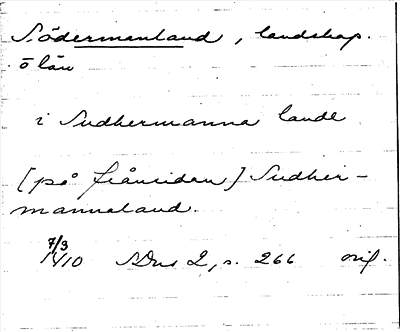 Södermanland, landskap.
o län
i Sudhermanna lande
[på frånsidan] Sudher-
mannaland.
7/3
1410 SDns 2, s. 266 orig.